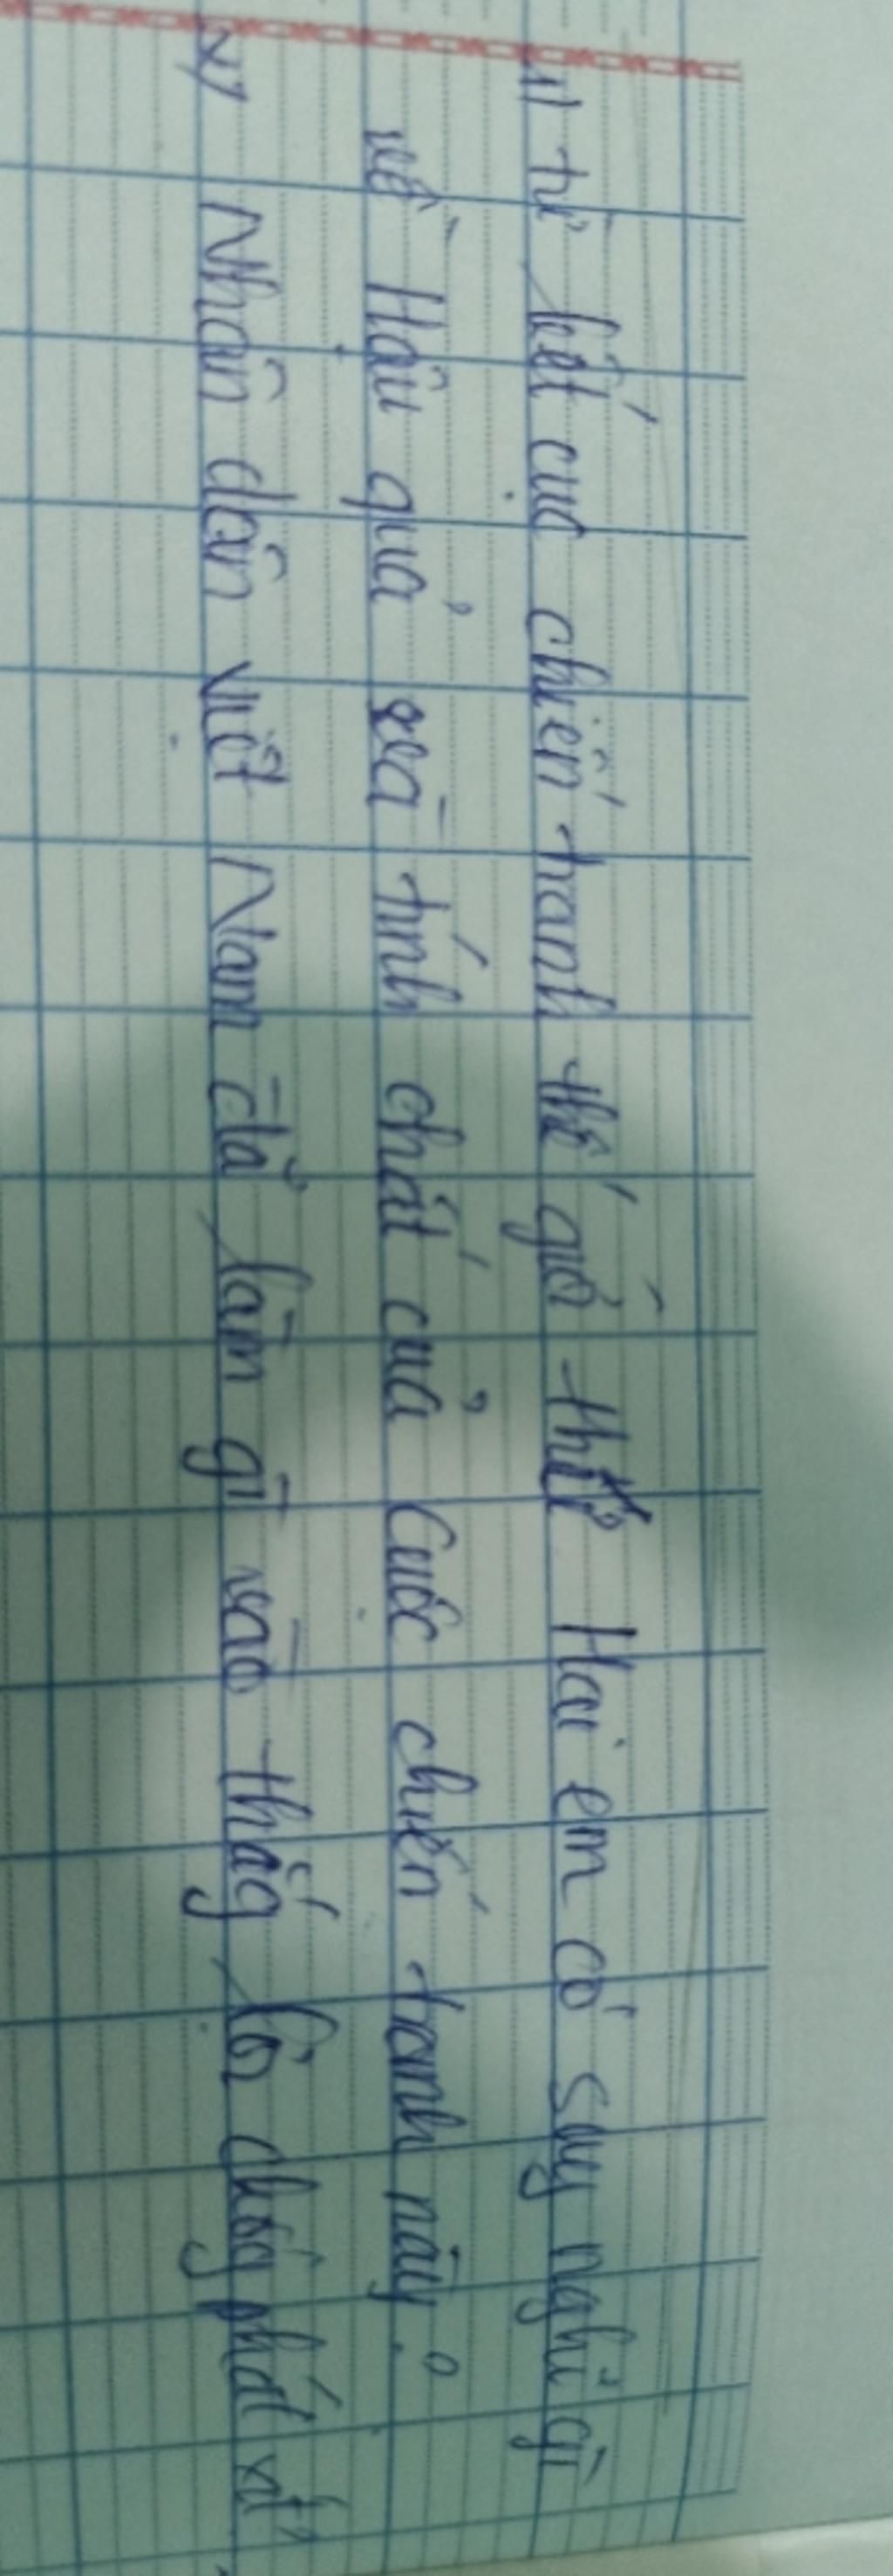 1) từ kết cục chiến tranh thế giới thứ Hai em có suy nghĩ gì
về Hậu quả và tính chất của Cuộc chiến tranh này.
2) Nhân dân việt Nam đã làm gì vào thắg lợi chốg phát xít